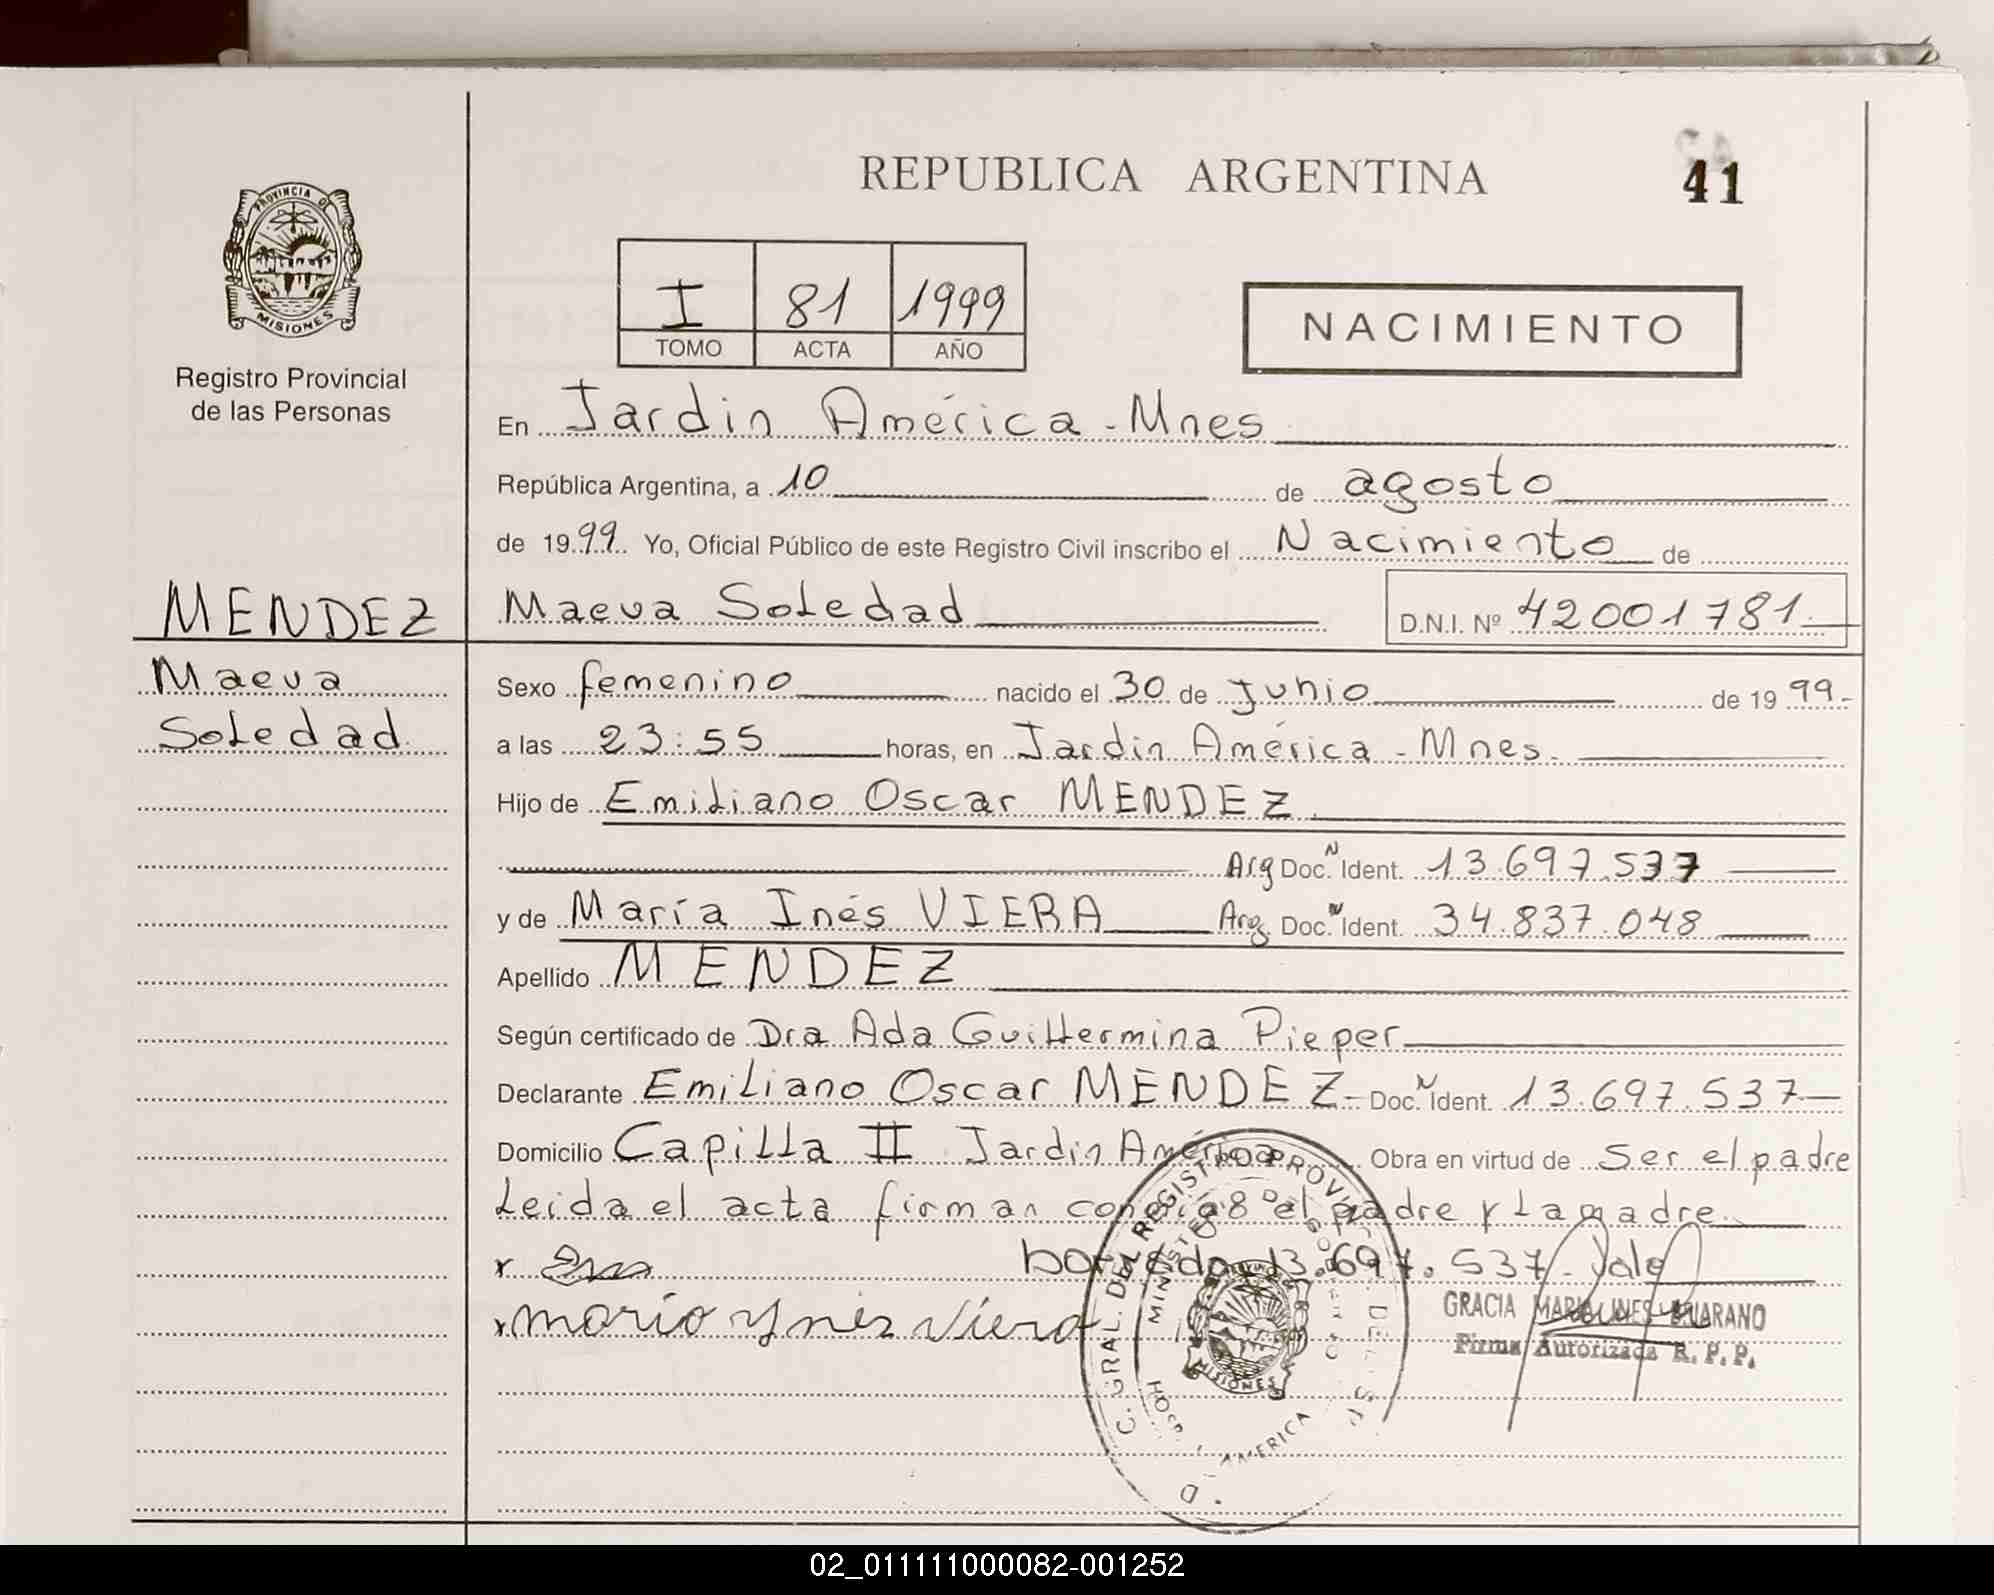 REPUBLICA ARGENTINA
41
PROVINCIA DE
MISIONES
Registro Provincial
de las Personas
I 81 1999
TOMO ACTA AÑO
NACIMIENTO
En Jardin América - Mnes
República Argentina, a 10 de agosto
de 1999 Yo, Oficial Público de este Registro Civil inscribo el Nacimiento de
MENDEZ
Maeva Soledad D.N.I. Nº 42001781
Maeva
Soledad
Sexo femenino nacido el 30 de Junio de 1999.-
a las 23:55 horas, en Jardin América - Mnes.
Hijo de Emiliano Oscar MENDEZ
Arg Doc. N Ident. 13.697.537
y de María Inés VIERA Arg Doc. N Ident. 34.837.048
Apellido MENDEZ
Según certificado de Dra Ada Guillermina Pieper
Declarante Emiliano Oscar MENDEZ - Doc. N Ident. 13.697.537
Domicilio Capilla II Jardin América Obra en virtud de Ser el padre
Leida el acta firman conmigo el padre y la madre
borrado 13.697.537. Vale
x
x mario Ynes Viera
GRACIA MARIA INES
Firma Autorizada R. P. P.
C. GRAL. DEL REGISTRO PROVI
MINISTE
MISIONES
AMERICA
02_011111000082-001252